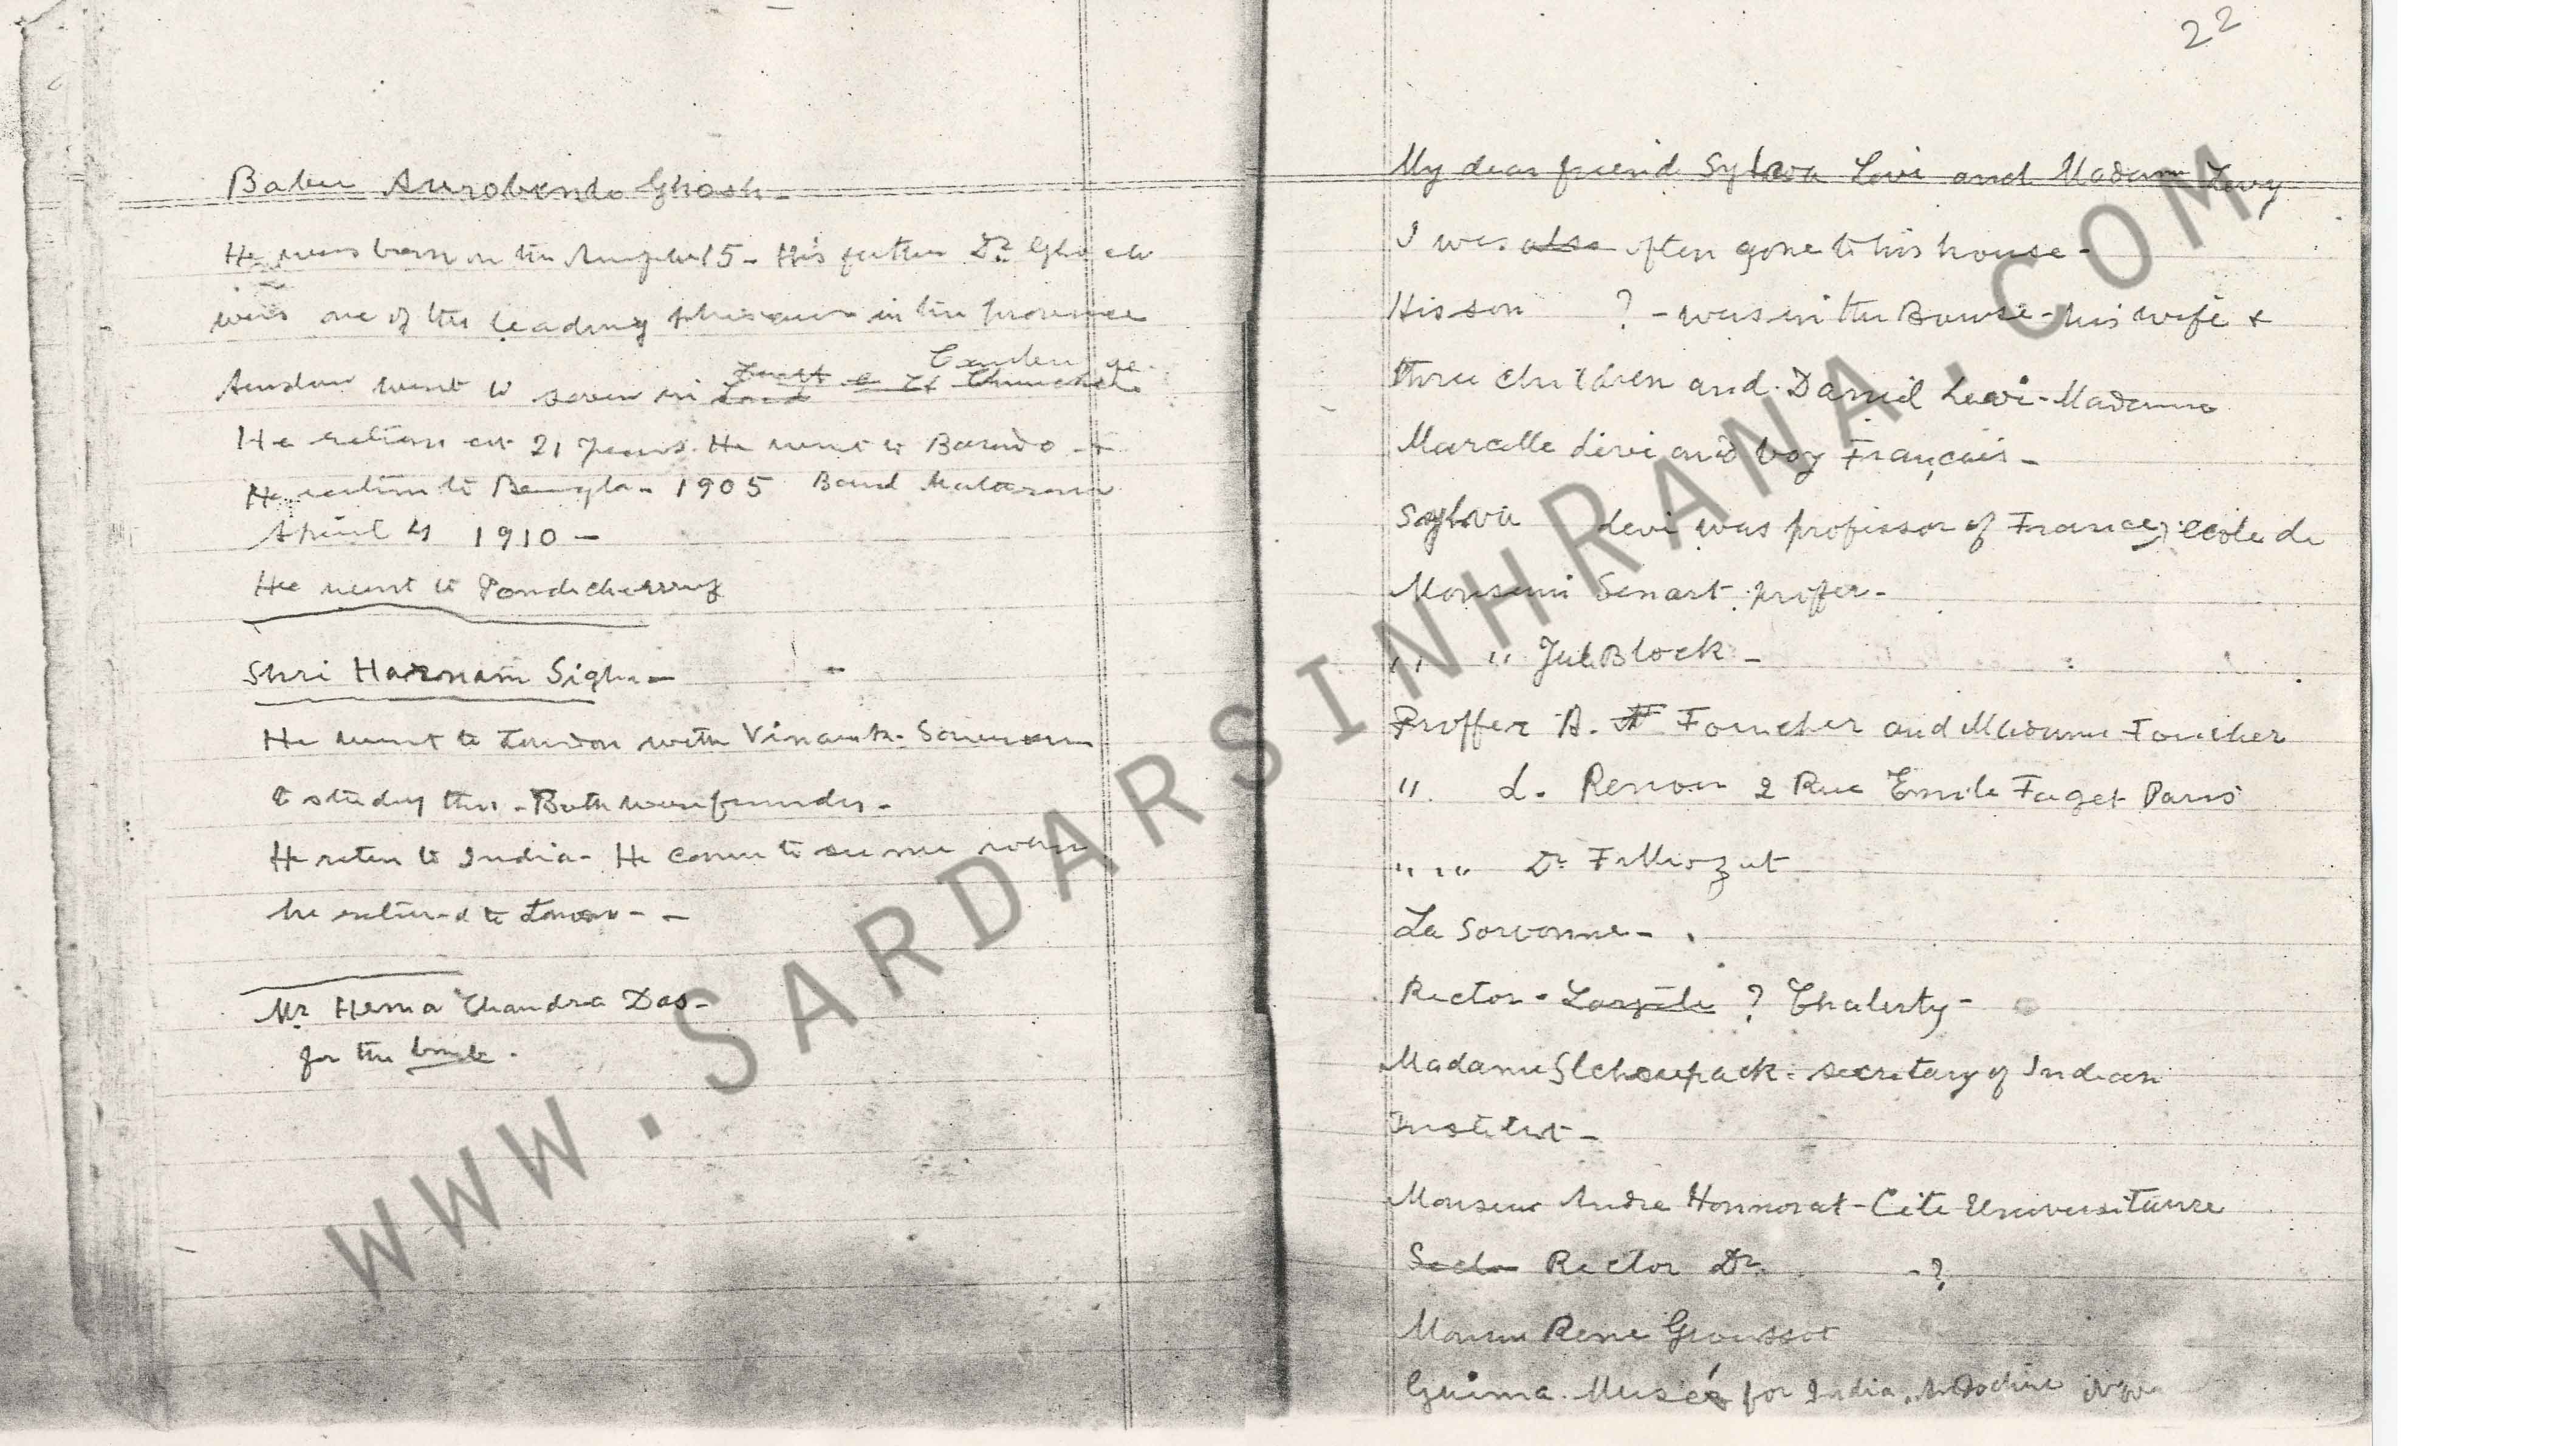 Babu Aurobendo Ghosh-
He was born on the August 15- His father Dr Ghosh
was one of the leading in the province
went to seven in
He return at 21 years. He went to Barodo - +
He return to Bengla- 1905 Band Mataram
April 4 1910 -
He went to Pondicherry
Shri Harnam Sigh-
He went to London with Vinayak-
to study this - Both were friends-
He return to India- He came to see me when
he returned to London- -
Mr Hema Chandra Das-
for the bomb.
22
My dear friend Sylva Levi and Madam Levy
I was also often gone to his house-
His son ? - was in the Bourse- his wife +
three children and Daniel Levi- Madame
Marcelle Levi and boy Français-
Sylvie Levi was professor of France, ecole de
Monsieur Senart proffer-
,, " Jul. Block -
Proffer A. F Foucher and Madame Foucher
" L. Renou 2 Rue Emile Faget Paris
" " Dr Filliozat
La Sorvonne- .
Rector- ? Chalerty-
Madame Slchoupack- secretary of Indian
Institut-
Monsieur Andre Honnorat- Cite Universitaire
Rector Dr -?
Rene Groussot
Guima Museé for India,
WWW.SARDARSINHRANA.COM